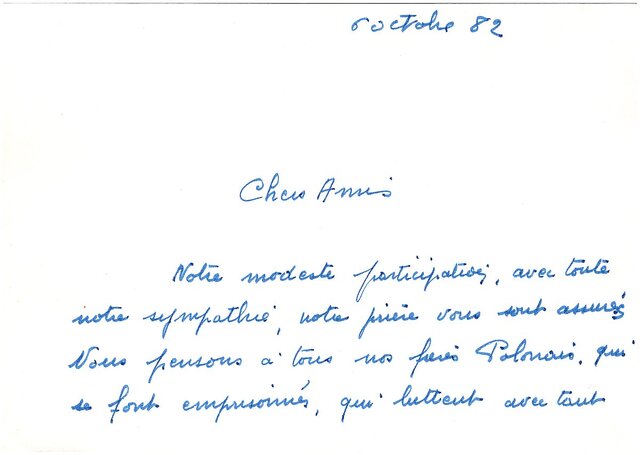 6 octobre 82
Chers Amis
Notre modeste participation, avec toute
notre sympathie, notre prière vous sont assurés
Nous pensons à tous nos frères Polonais, qui
se font emprisonnés, qui luttent avec tant